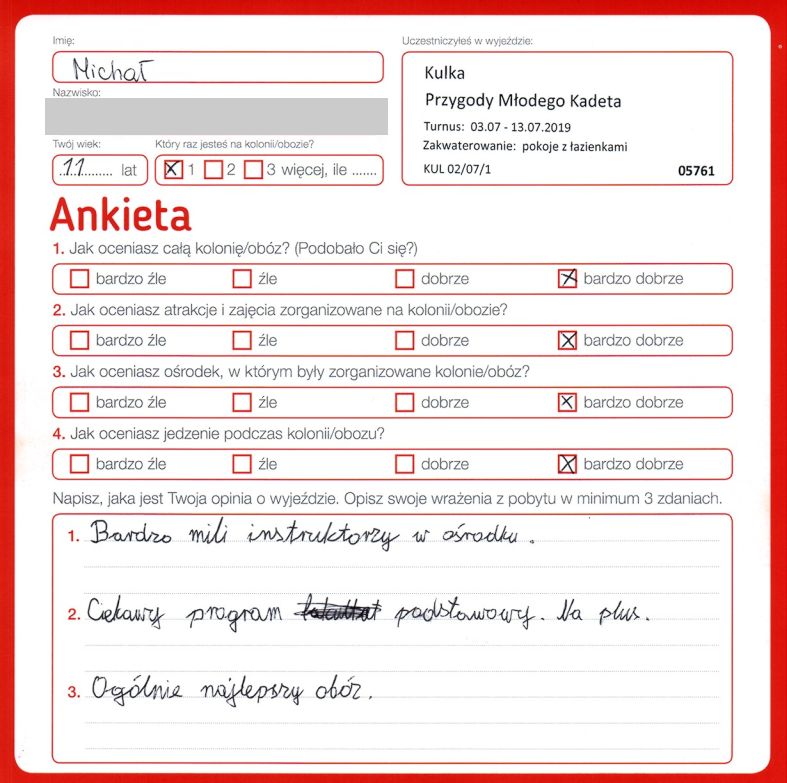 Imię:
Michał
Nazwisko:
Twój wiek:
11 lat
Który raz jesteś na kolonii/obozie?
1 2 3 więcej, ile .......
Uczestniczyłeś w wyjeździe:
Kulka
Przygody Młodego Kadeta
Turnus: 03.07 - 13.07.2019
Zakwaterowanie: pokoje z łazienkami
KUL 02/07/1 05761
Ankieta
1. Jak oceniasz całą kolonię/obóz? (Podobało Ci się?)
bardzo źle źle dobrze bardzo dobrze
2. Jak oceniasz atrakcje i zajęcia zorganizowane na kolonii/obozie?
bardzo źle źle dobrze bardzo dobrze
3. Jak oceniasz ośrodek, w którym były zorganizowane kolonie/obóz?
bardzo źle źle dobrze bardzo dobrze
4. Jak oceniasz jedzenie podczas kolonii/obozu?
bardzo źle źle dobrze bardzo dobrze
Napisz, jaka jest Twoja opinia o wyjeździe. Opisz swoje wrażenia z pobytu w minimum 3 zdaniach.
1. Bardzo mili instruktorzy w ośrodku.
2. Ciekawy program podstawowy. Na plus.
3. Ogólnie najlepszy obóz.